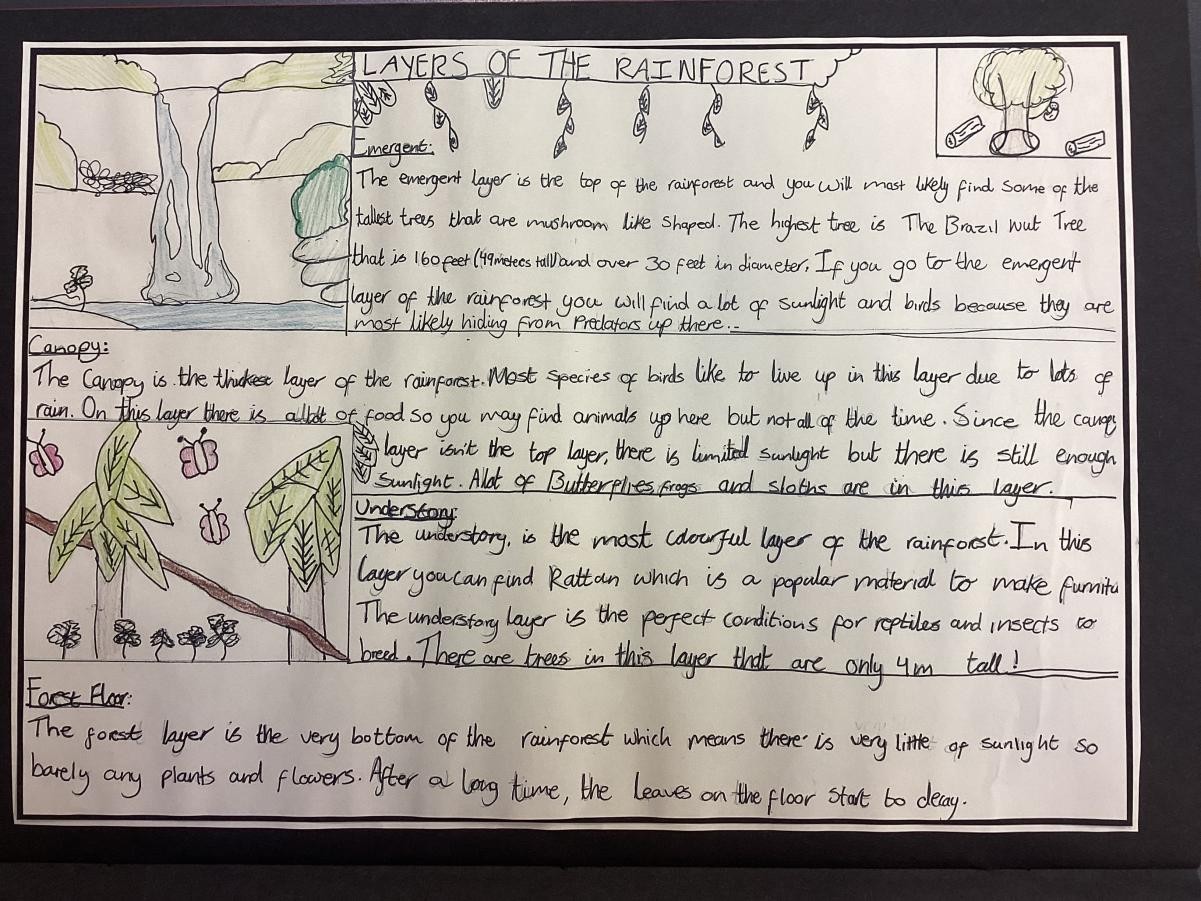 LAYERS OF THE RAINFOREST
Emergent:
The emergent layer is the top of the rainforest and you will most likely find some of the
tallest trees that are mushroom like shaped. The highest tree is The Brazil nut Tree
that is 160 feet (49 meters tall) and over 30 feet in diameter. If you go to the emergent
layer of the rainforest you will find a lot of sunlight and birds because they are
most likely hiding from Predators up there..
Canopy:
The Canopy is the thickest layer of the rainforest. Most species of birds like to live up in this layer due to lots of
rain. On this layer there is allot of food so you may find animals up here but not all of the time. Since the canopy
layer isn't the top layer, there is limited sunlight but there is still enough
sunlight. Alot of Butterflies, frogs and sloths are in this layer.
Understory:
The understory, is the most colourful layer of the rainforest. In this
layer you can find Rattan which is a popular material to make furnitu
The understory layer is the perfect conditions for reptiles and insects to
breed. There are trees in this layer that are only 4m tall!
Forest Floor:
The forest layer is the very bottom of the rainforest which means there is very little of sunlight so
barely any plants and flowers. After a long time, the leaves on the floor start to decay.